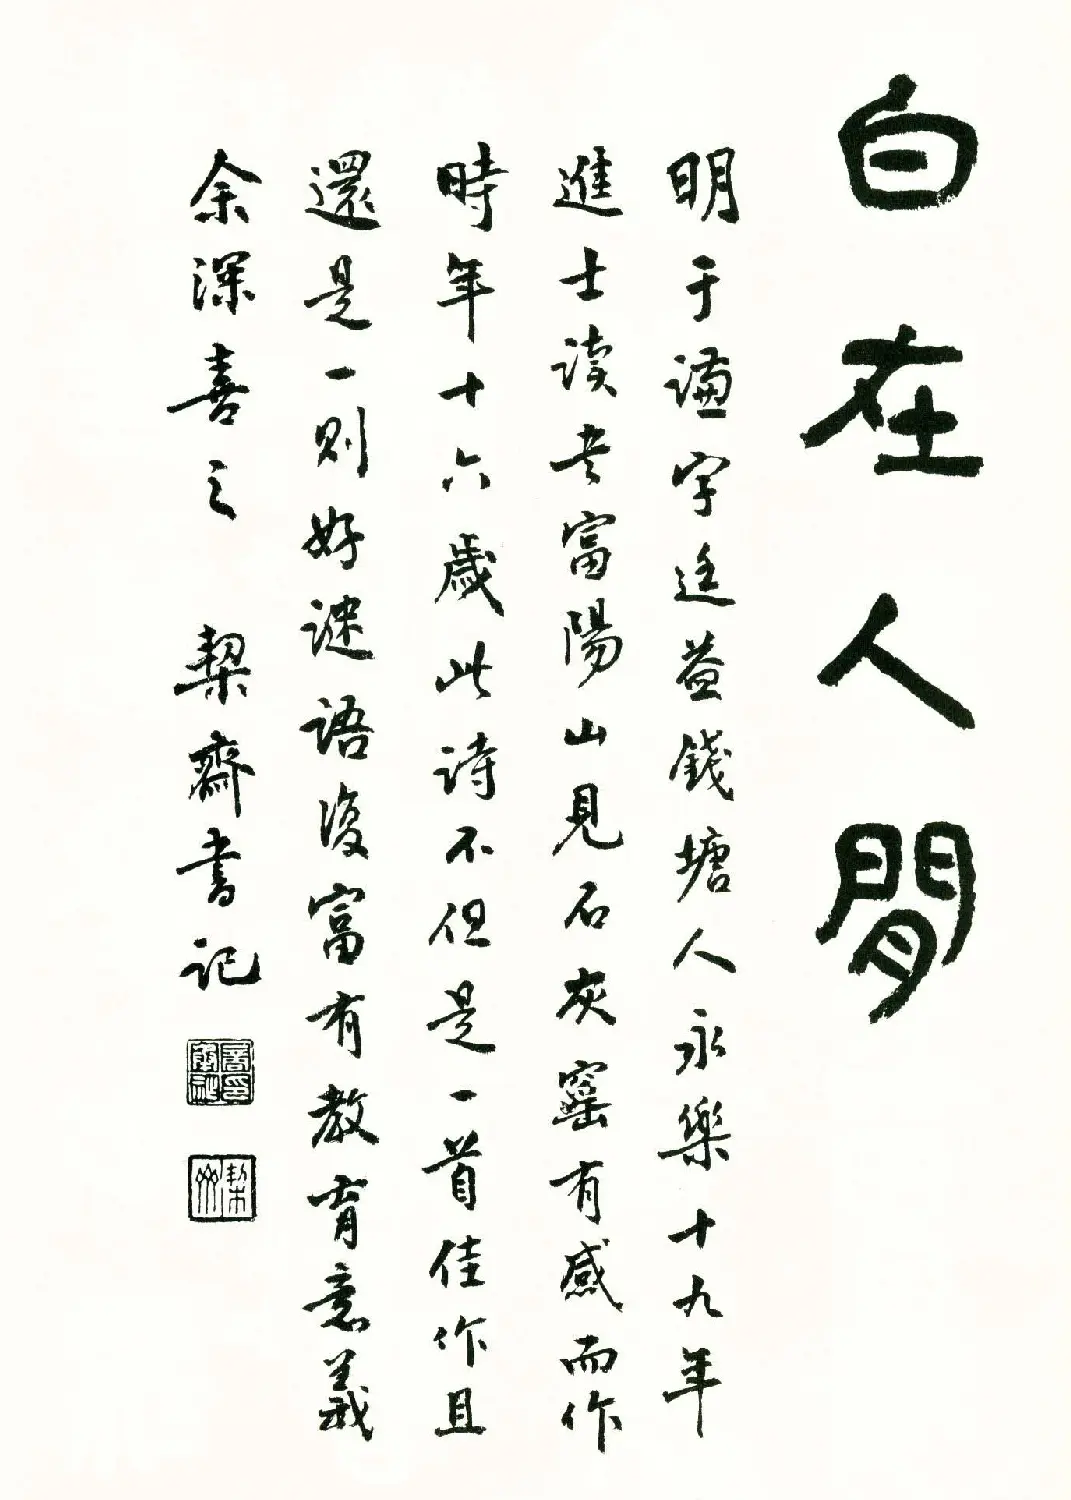 白在人間
明于谦字廷益錢塘人永樂十九年
進士读书富陽山見石灰窰有感而作
時年十六歲此诗不但是一首佳作且
還是一则好谜语復富有教育意義
余深喜之 栔齋书记